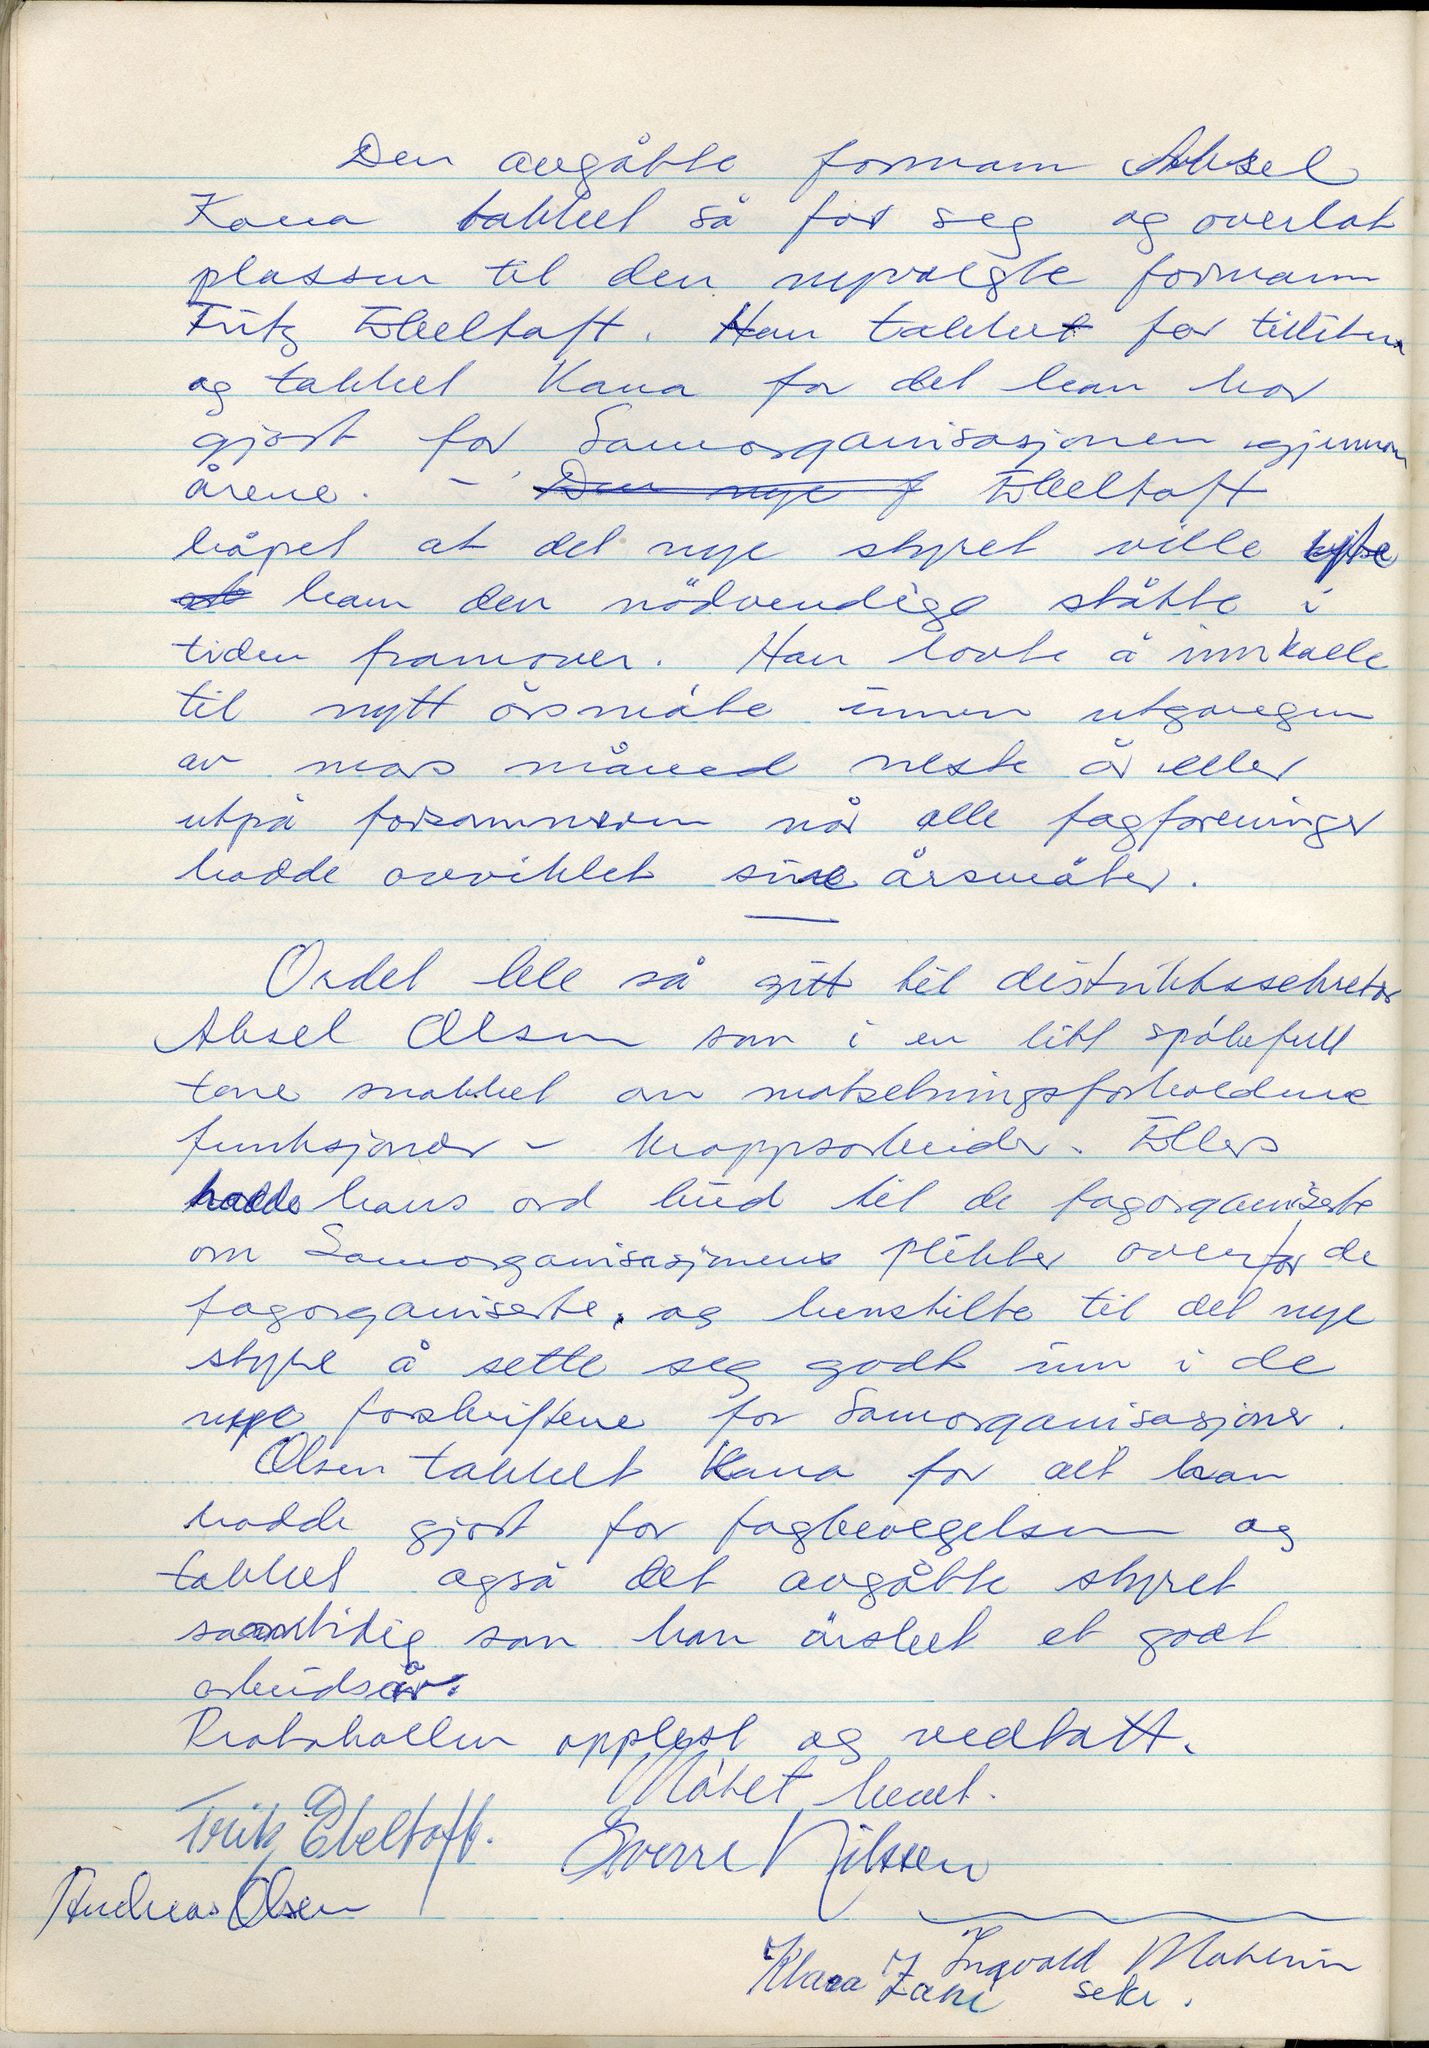 Den avgåtte formann Aksel
Kana takket så for seg og overlot
plassen til den nyvalgte formann
Fritz Ebeltoft. Han takket for tilliten
og takket Kana for det han har
gjort for Samorganisasjonen gjennom
årene. - Den nye f Ebeltoft
håpet at det nye styret ville yte
ham den nödvendige støtte i
tiden framover. Han lovte å innkalle
til nytt årsmøte innen utgangen
av mars måned neste år eller
utpå forsommeren når alle fagforeninger
hadde avviklet sine årsmøter.
Ordet ble så gitt til distriktssekretær
Aksel Olsen som i en litt spøkefull
tone snakket om motsetningsforholdene
funksjonær - kroppsarbeider. Ellers
hadde hans ord bud til de fagorganiserte
om Samorganisasjonens plikter overfor de
fagorganiserte, og henstilte til det nye
styre å sette seg godt inn i de
nye forskriftene for Samorganisasjoner.
Olsen takket Kana for alt han
hadde gjort for fagbevegelsen og
takket også det avgåtte styret
samtidig som han ønsket et godt
arbeidsår.
Protokollen opplest og vedtatt.
Møtet hevet.
Fritz Ebeltoft. Sverre Nilssen
Andreas Olsen
Ingvald
Klara sekr.